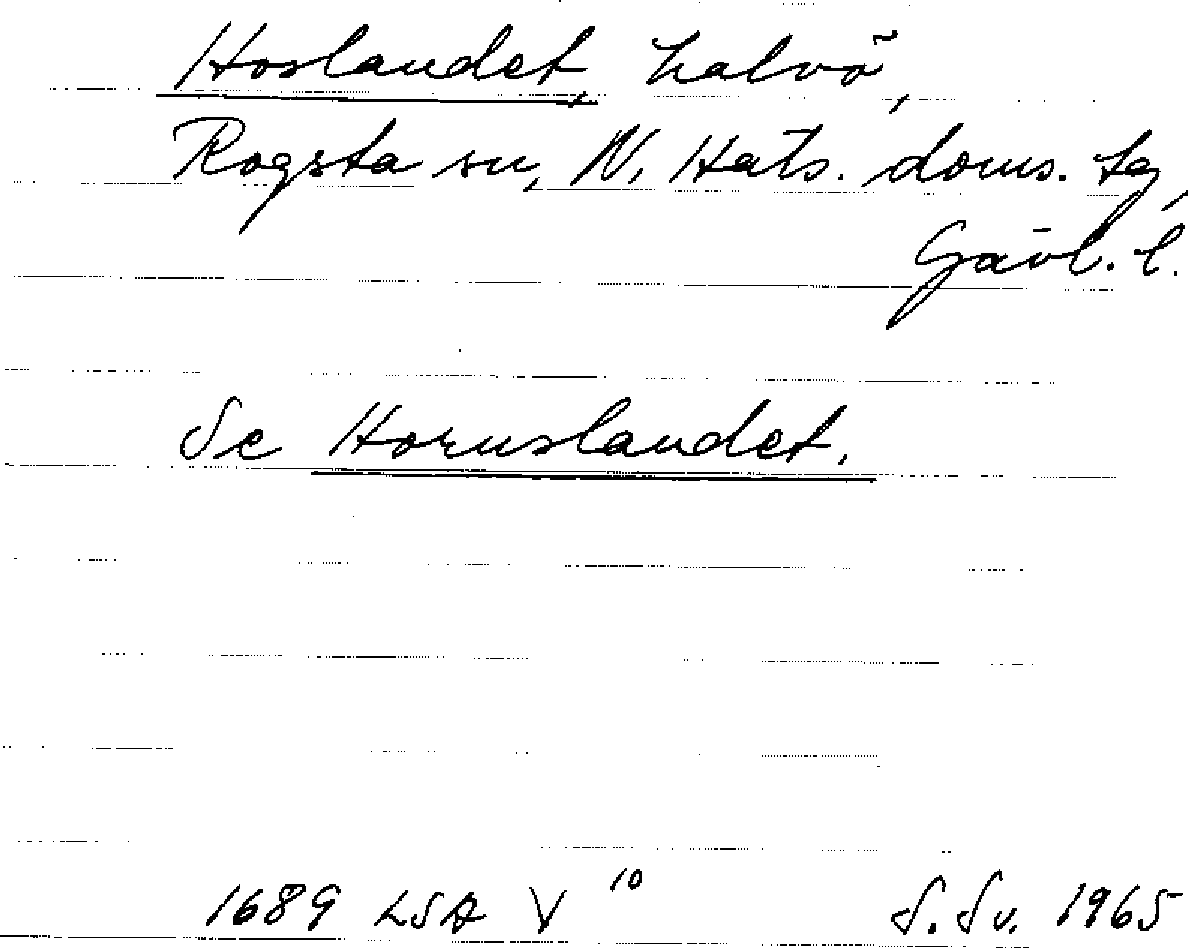 Hoslandet, halvö,
Rogsta sn, N. Häls. doms. tg,
Gävl. l.
Se Hornslandet.
1689 LSA V 10 S. Sv. 1965